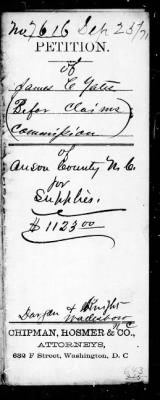 No 7616 Sep 23/71
PETITION.
of
James C Yates
Befor Claims
Commission
of
Anson County N. C.
for
Supplies.
$1123 00
Dargan & Knight
Wadesboro
N C
CHIPMAN, HOSMER & CO.,
ATTORNEYS,
632 F Street, Washington, D. C